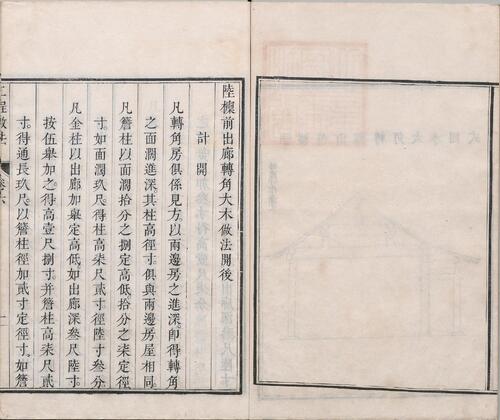 陸檁前出廊轉角大木做法開後
計開
凡轉角房俱係見方。以兩邊房之進深。即得轉角
之面濶進深。其柱高徑寸俱與兩邊房屋相同。
凡簷柱以面濶拾分之捌定高低。拾分之柒定徑
寸。如面濶玖尺。得柱高柒尺貳寸。徑陸寸叁分。
凡金柱以出廊加舉定高低。如出廊深叁尺陸寸。
按伍舉加之。得高壹尺捌寸。并簷柱高柒尺貳
寸。得通長玖尺。以簷柱徑加貳寸定徑寸。如簷
工程做法
卷六
一